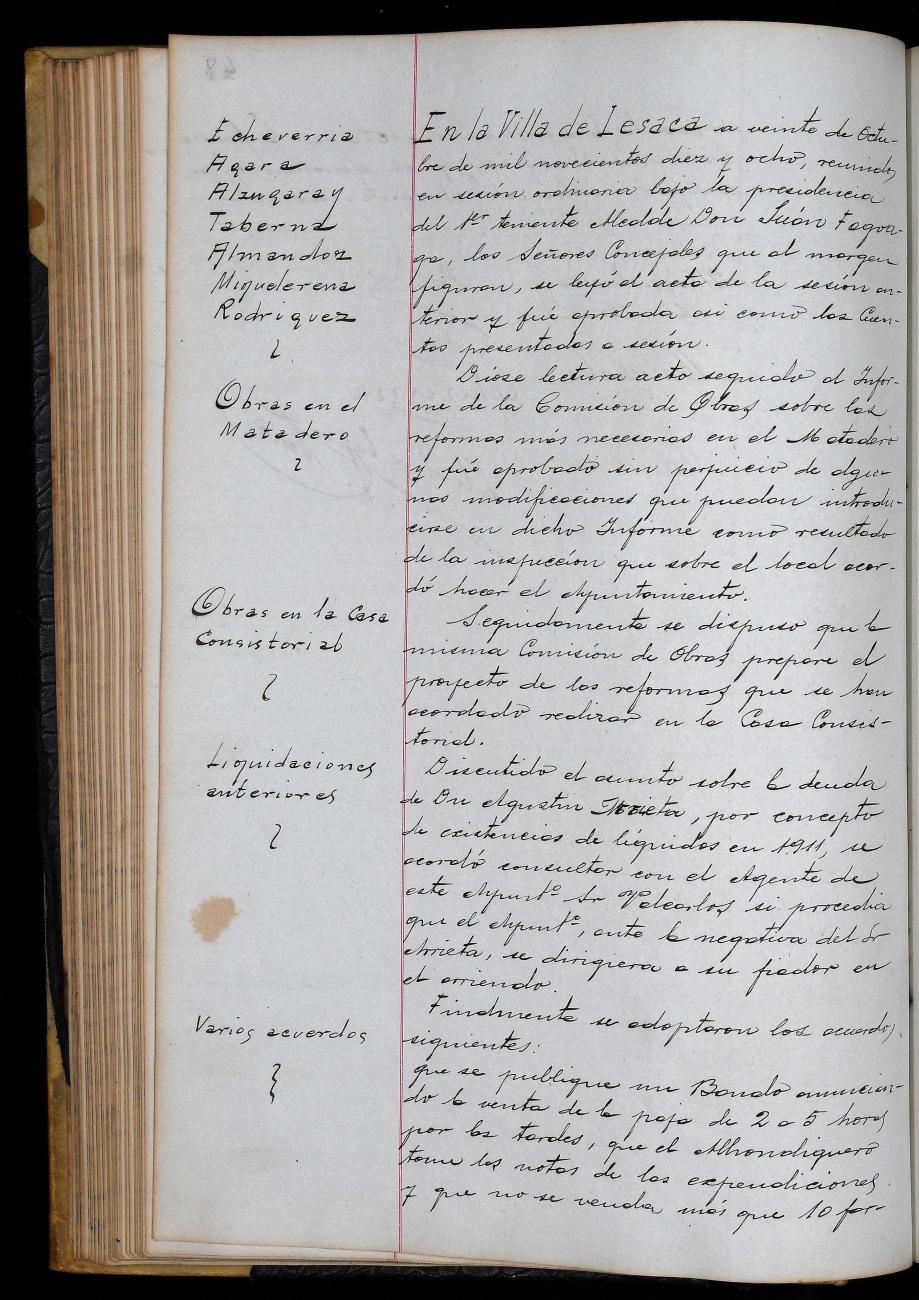 Echeverria
Agara
Alzugaray
Taberna
Almandoz
Miquelerena
Rodriguez
Obras en el
Matadero
Obras en la Casa
Consistorial
Liquidaciones
anteriores
Varios acuerdos
En la Villa de Lesaca a veinte de Octu-
bre de mil novecientos diez y ocho, reunidos
en sesión ordinaria bajo la presidencia
del 1er teniente Alcalde Don Juán Fagoa-
ga, los Señores Concejales que al margen
figuran, se leyó el acta de la sesión an-
terior y fué aprobada asi como las Cuen-
tas presentadas a sesión.
Dióse lectura acto seguido al Infor-
me de la Comisión de Obras sobre las
reformas más necesarias en el Matadero
y fué aprobado sin perjuicio de algu-
nas modificaciones que puedan introdu-
cirse en dicho Informe como resultado
de la inspección que sobre el local acor-
dó hacer el Ayuntamiento.
Seguidamente se dispuso que la
misma Comisión de Obras prepare el
proyecto de las reformas que se han
acordado realizar en la Casa Consis-
torial.
Discutido el asunto sobre la deuda
de Dn Agustin Arrieta, por concepto
de existencias de líquidos en 1911, se
acordó consultar con el Agente de
este Ayuntº Sr Valcarlos si procedia
que el Ayuntº, ante la negativa del Sr
Arrieta, se dirigiera a su fiador en
el arriendo.
Finalmente se adoptaron los acuerdos
siguientes:
que se publique un Bando anuncian-
do la venta de la paja de 2 a 5 horas
por las tardes, que el Alhondiguero
tome las notas de las expendiciones
y que no se venda más que 10 far-